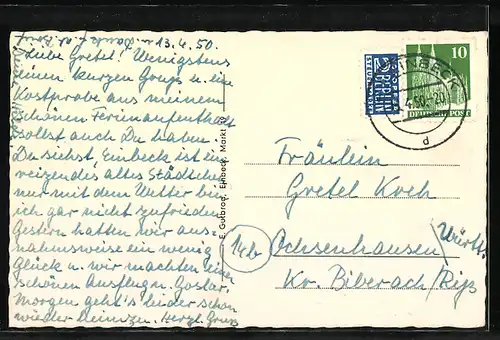 13.4.50.
Liebe Gretel! Wenigstens
einen kurzen Gruss u. eine
Kostprobe aus meinem
schönen Ferienaufenthalt
sollst auch Du haben.
Du siehst, Einbeck ist ein
reizendes altes Städtchen
nur mit dem Wetter bin
ich gar nicht zufrieden
Gestern hatten wir aus-
nahmsweise ein wenig
Glück u. wir machten einen
schönen Ausflug n. Goslar.
Morgen geht's leider schon
wieder heimzu. Herzl. Gruss
E. Gutbrod, Einbeck, Markt
NOTOPFER
2 BERLIN
STEUERMARKE
EINBECK
4.50.-20
d
10
DEUTSCHE POST
Fräulein
Gretel Koch
14b
Ochsenhausen
Württ.
Kr. Biberach/Riß